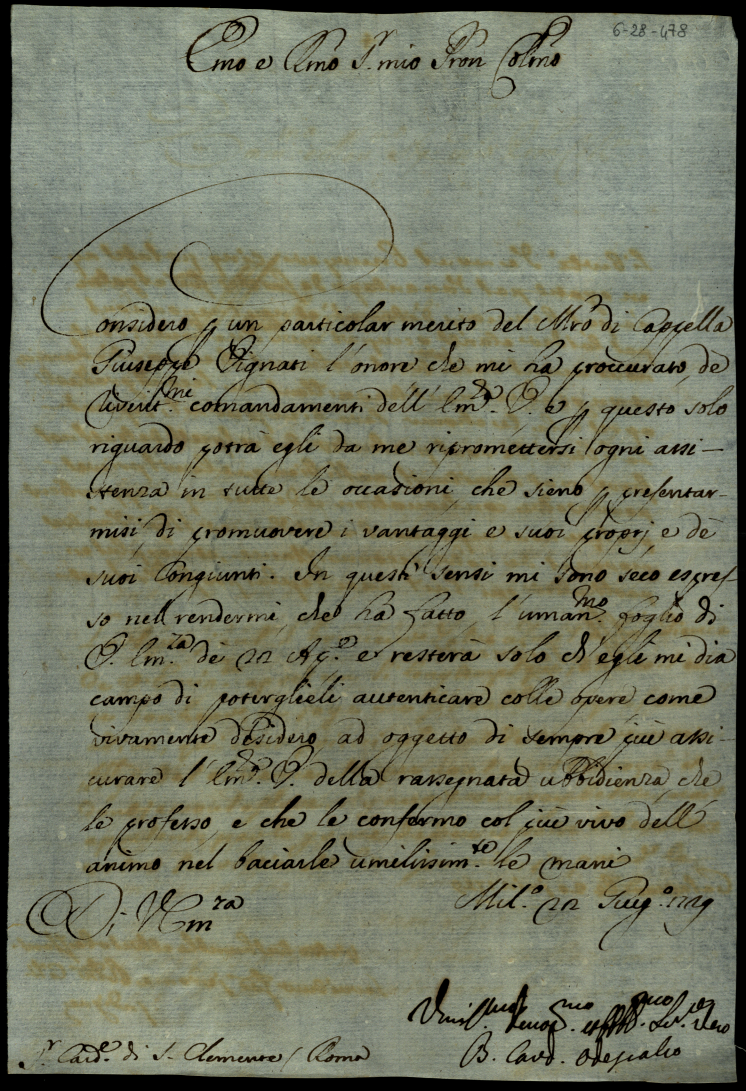 6-28-478
Emo e Rmo Sr. mio Pron Colmo
Considero p un particolar merito del Mro di Cappella
Giuseppe Vignati l'onore che mi ha proccurato de
riverit.mi comandamenti dell'Em.za V. e p questo solo
riguardo potrà egli da me ripromettersi ogni assi-
stenza in tutte le occasioni, che sieno p presentar-
misi, di promuovere i vantaggi e suoi proprj, e de
suoi Congiunti. In questi sensi mi sono seco espres-
so nell rendermi, che ha fatto, l'uman.mo foglio di
V. Em.za de 22 e resterà solo ch'egli mi dia
campo di poterglieli autenticare colle opere come
vivamente desidero, ad oggetto di sempre più assi-
curare l'Em.za V. della rassegnata ubbidienza, che
le professo, e che le confermo col più vivo dell'
animo nel baciarle umilissim.te le mani
Di V Em.za
Mil.o 22 Giug.o 1729
Umil.mo devot.mo Ser.re vero
B. Card. Odescalco
Sr. Card.e di S. Clemente / Roma